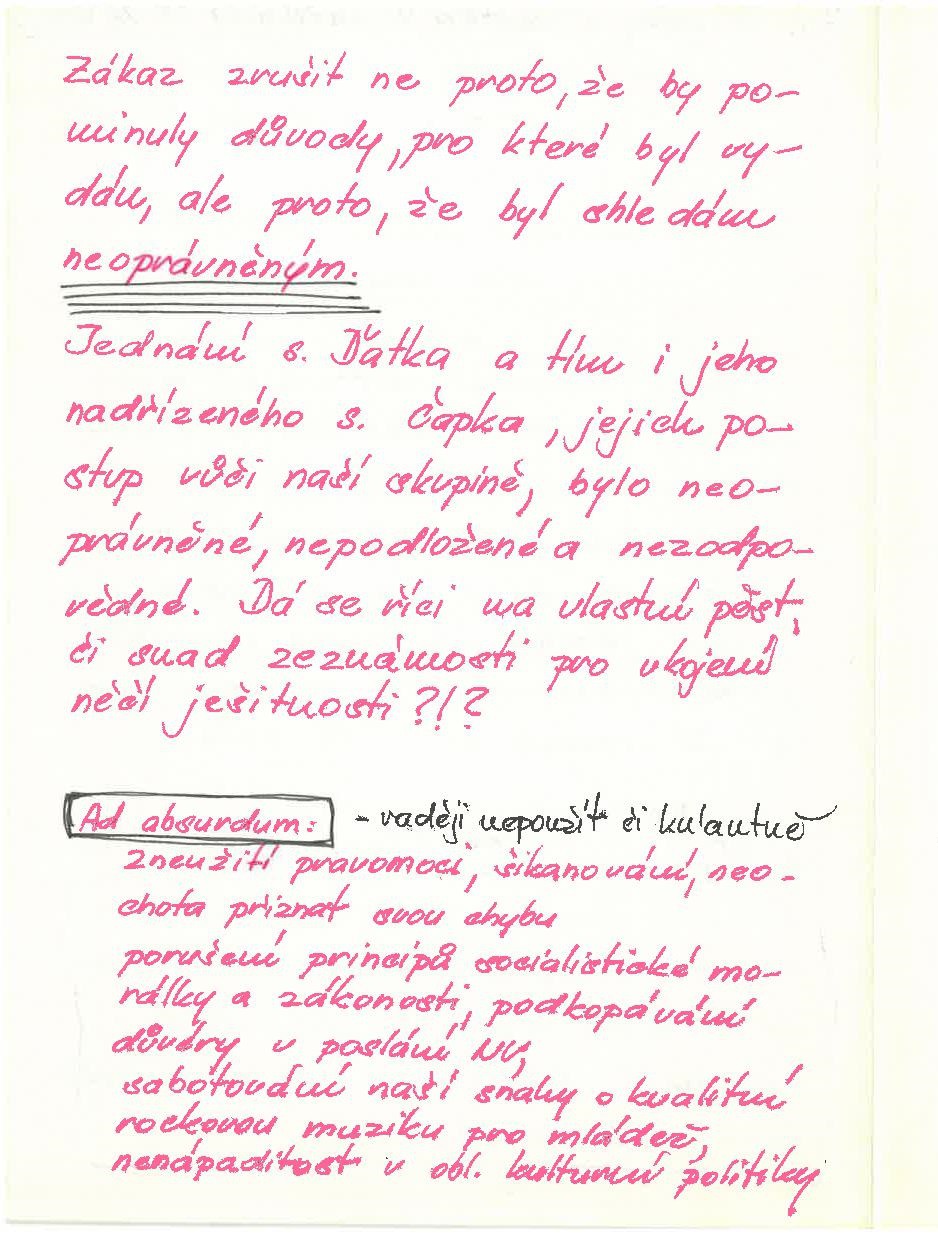 Zákaz zrušit ne proto, že by po-
minuly důvody, pro které byl vy-
dán, ale proto, že byl shledám
neoprávněným.
Jednání s. Ďatka a tím i jeho
nadřízeného s. Čapka, jejich po-
stup vůči naší skupině, bylo neo-
právněné, nepodložené a nezodpo-
vědné. Dá se říci na vlastní pěst,
či snad ze známosti pro ukojení
něčí ješitnosti?!?
Ad absurdum: - raději nepoužít či kulantně
zneužití pravomoci, šikanování, neo-
chota přiznat svou chybu
porušení principů socialistické mo-
rálky a zákonosti, podkopávání
důvěry v poslání NV,
sabotování naší snahy o kvalitní
rockovou muziku pro mládež,
nenápaditost v obl. kulturní politiky